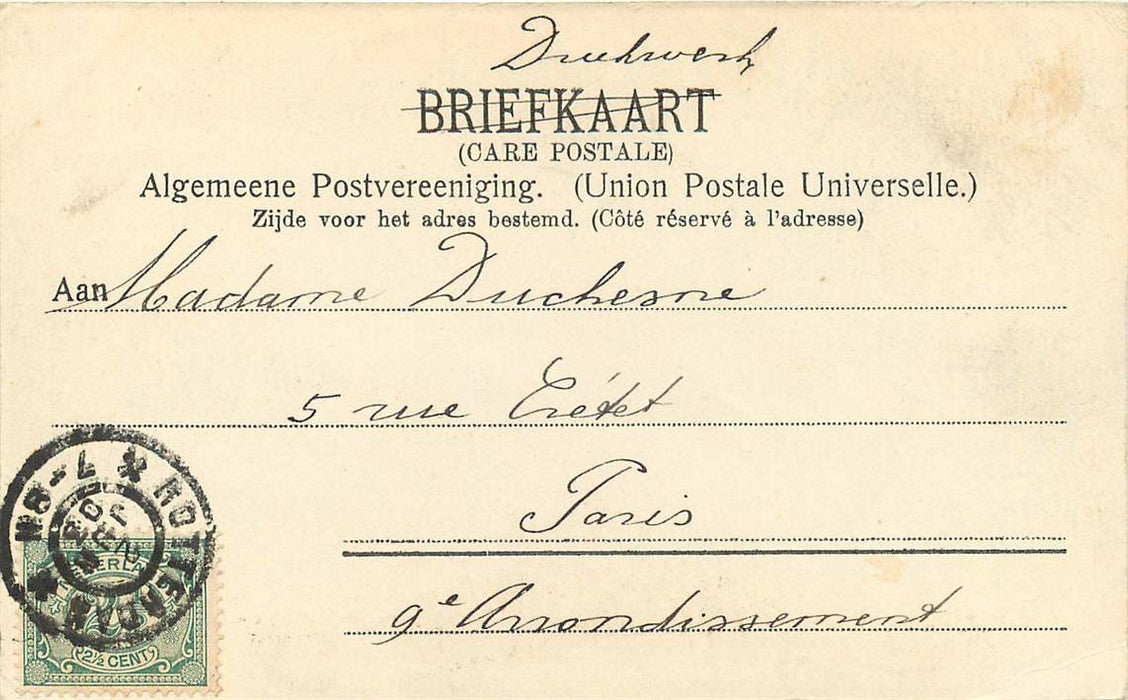 Drukwerk
BRIEFKAART
(CARE POSTALE)
Algemeene Postvereeniging. (Union Postale Universelle.)
Zijde voor het adres bestemd. (Côté réservé à l'adresse)
Aan Madame Duchesne
5 rue Crétet
Paris
9e Arrondissement
ROTTERDAM
7-8N
NEDERLAND
2½ CENT